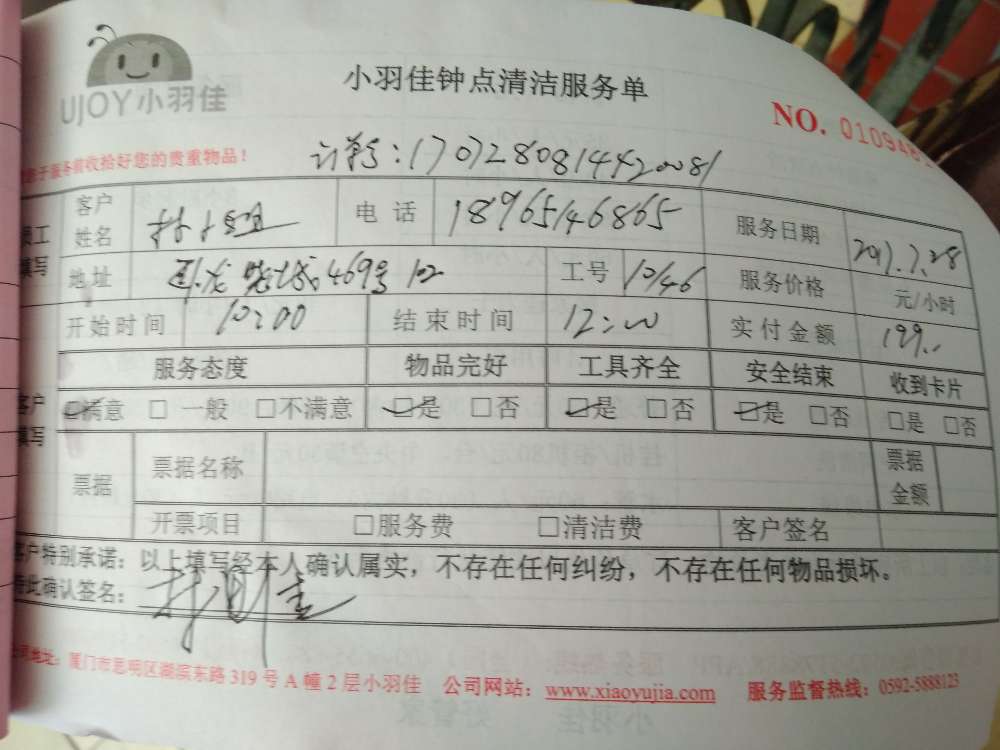 UJOY小羽佳
小羽佳钟点清洁服务单
NO. 010948
服务前收拾好您的贵重物品！
订单号：17072808144420081
员工填写
客户姓名 林小姐 电话 18965146865 服务日期 2017.7.28
地址 469号 102 工号 10146 服务价格 元/小时
开始时间 10:00 结束时间 12:00 实付金额 199..
服务态度 物品完好 工具齐全 安全结束 收到卡片
客户填写
☑满意 □一般 □不满意 ☑是 □否 ☑是 □否 ☑是 □否 □是 □否
票据 票据名称 票据金额
开票项目 □服务费 □清洁费 客户签名
客户特别承诺：以上填写经本人确认属实，不存在任何纠纷，不存在任何物品损坏。
特此确认签名：
公司地址：厦门市思明区湖滨东路 319 号 A 幢 2 层小羽佳 公司网站：www.xiaoyujia.com 服务监督热线：0592-5888123